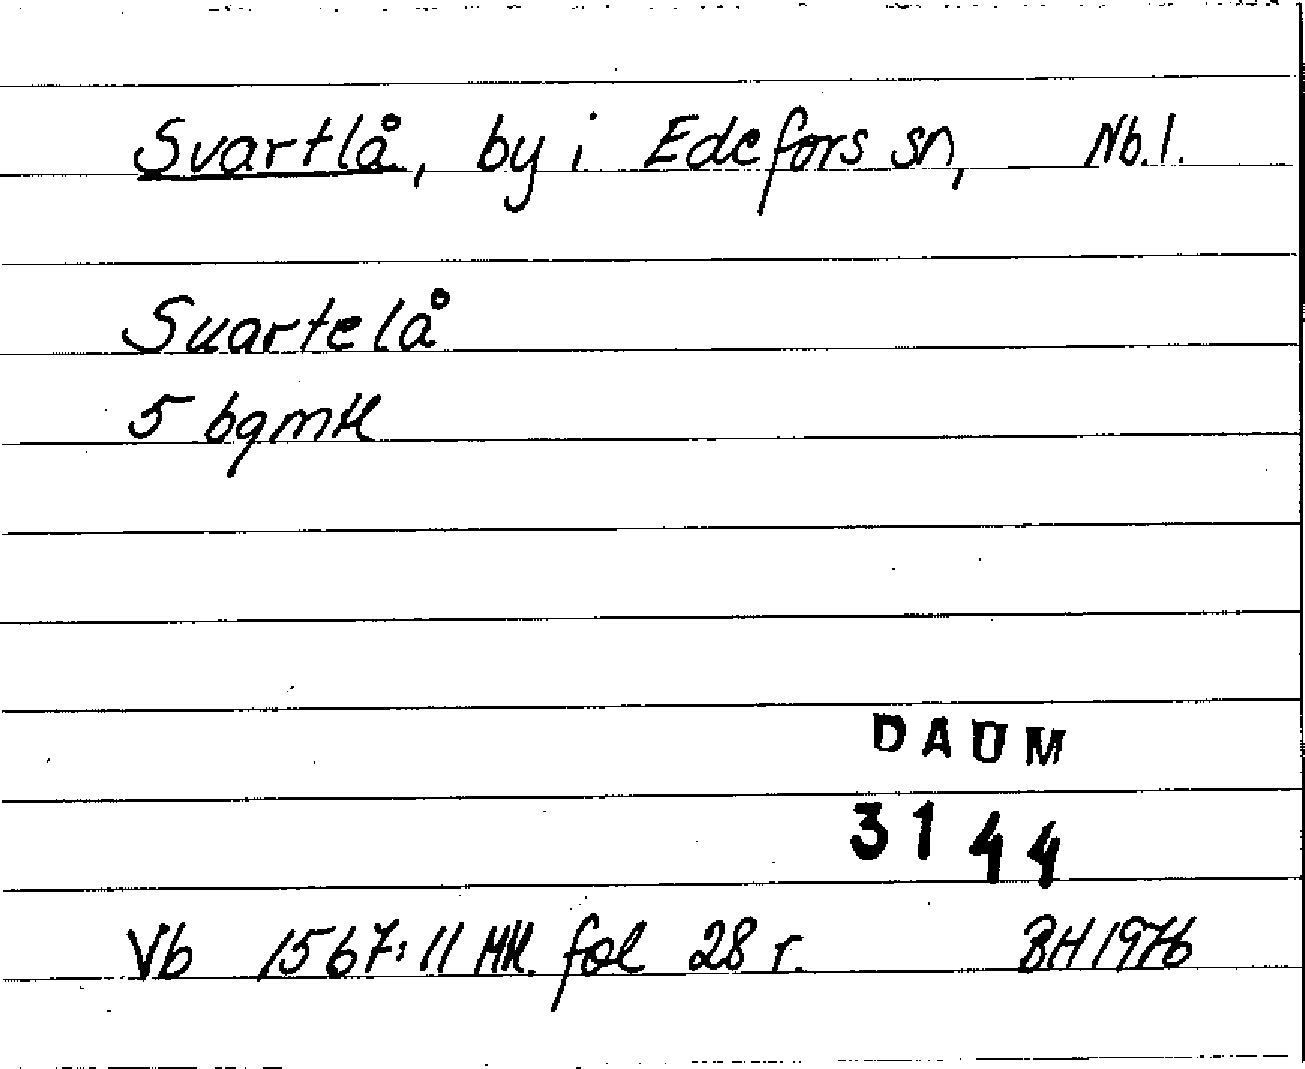 Svartlå, by i Edefors sn, Nb.l.
Suartelå
5 bgmtl
DAUM
3144
Vb 1567:11 Mtl. fol 28 r. BH 1976